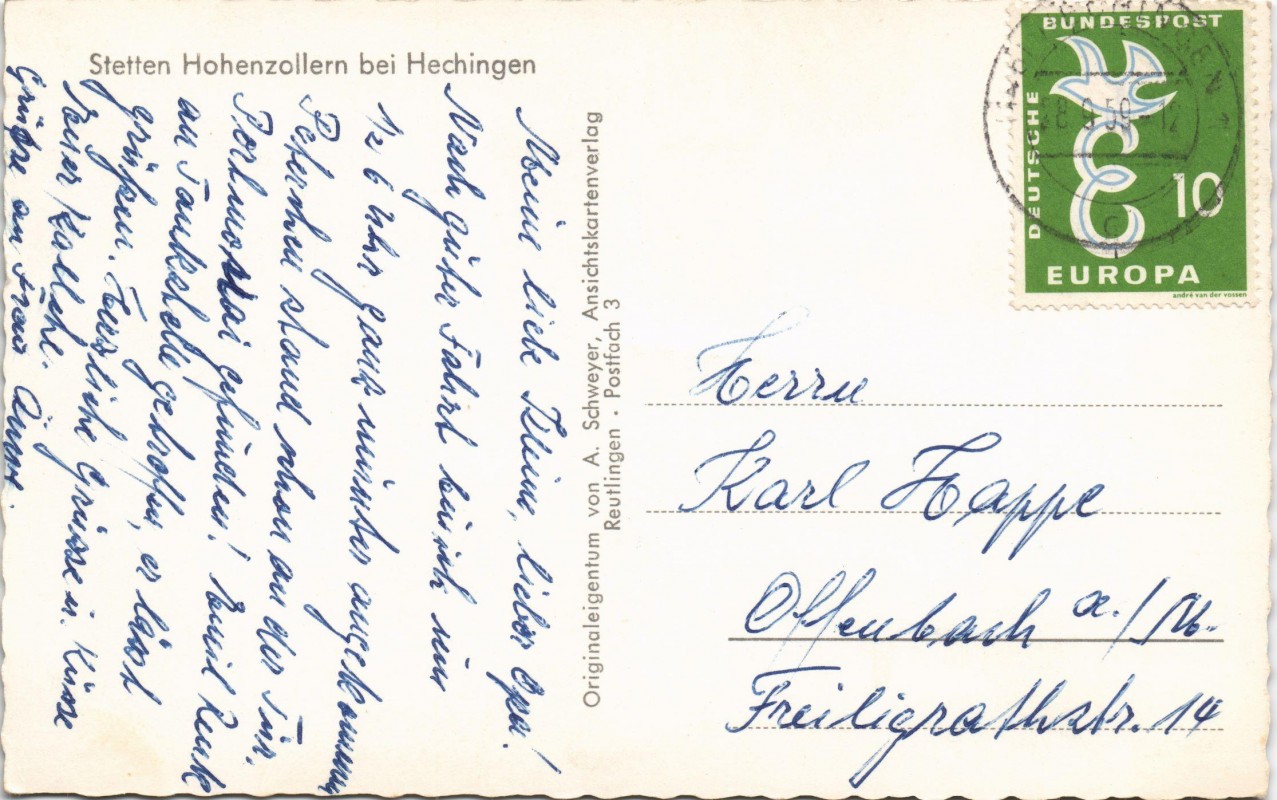 Stetten Hohenzollern bei Hechingen
Meine liebe Kleine, lieber Opa!
Nach guter Fahrt bin ich um
½ 6 Uhr ganz munter angekommen
Peterchen stand schon an der Tür.
gefunden! Emil
an Tankstelle getroffen, er lässt
grüßen. Herzliche Grüsse u. Küsse
Euer
Grüsse an Frau
Originaleigentum von A. Schweyer, Ansichtskartenverlag
Reutlingen · Postfach 3
DEUTSCHE
BUNDESPOST
10
EUROPA
andré van der vossen
8 9 59 - 12
c
Herrn
Karl Happe
Offenbach a./M.
Freiligrathstr. 14